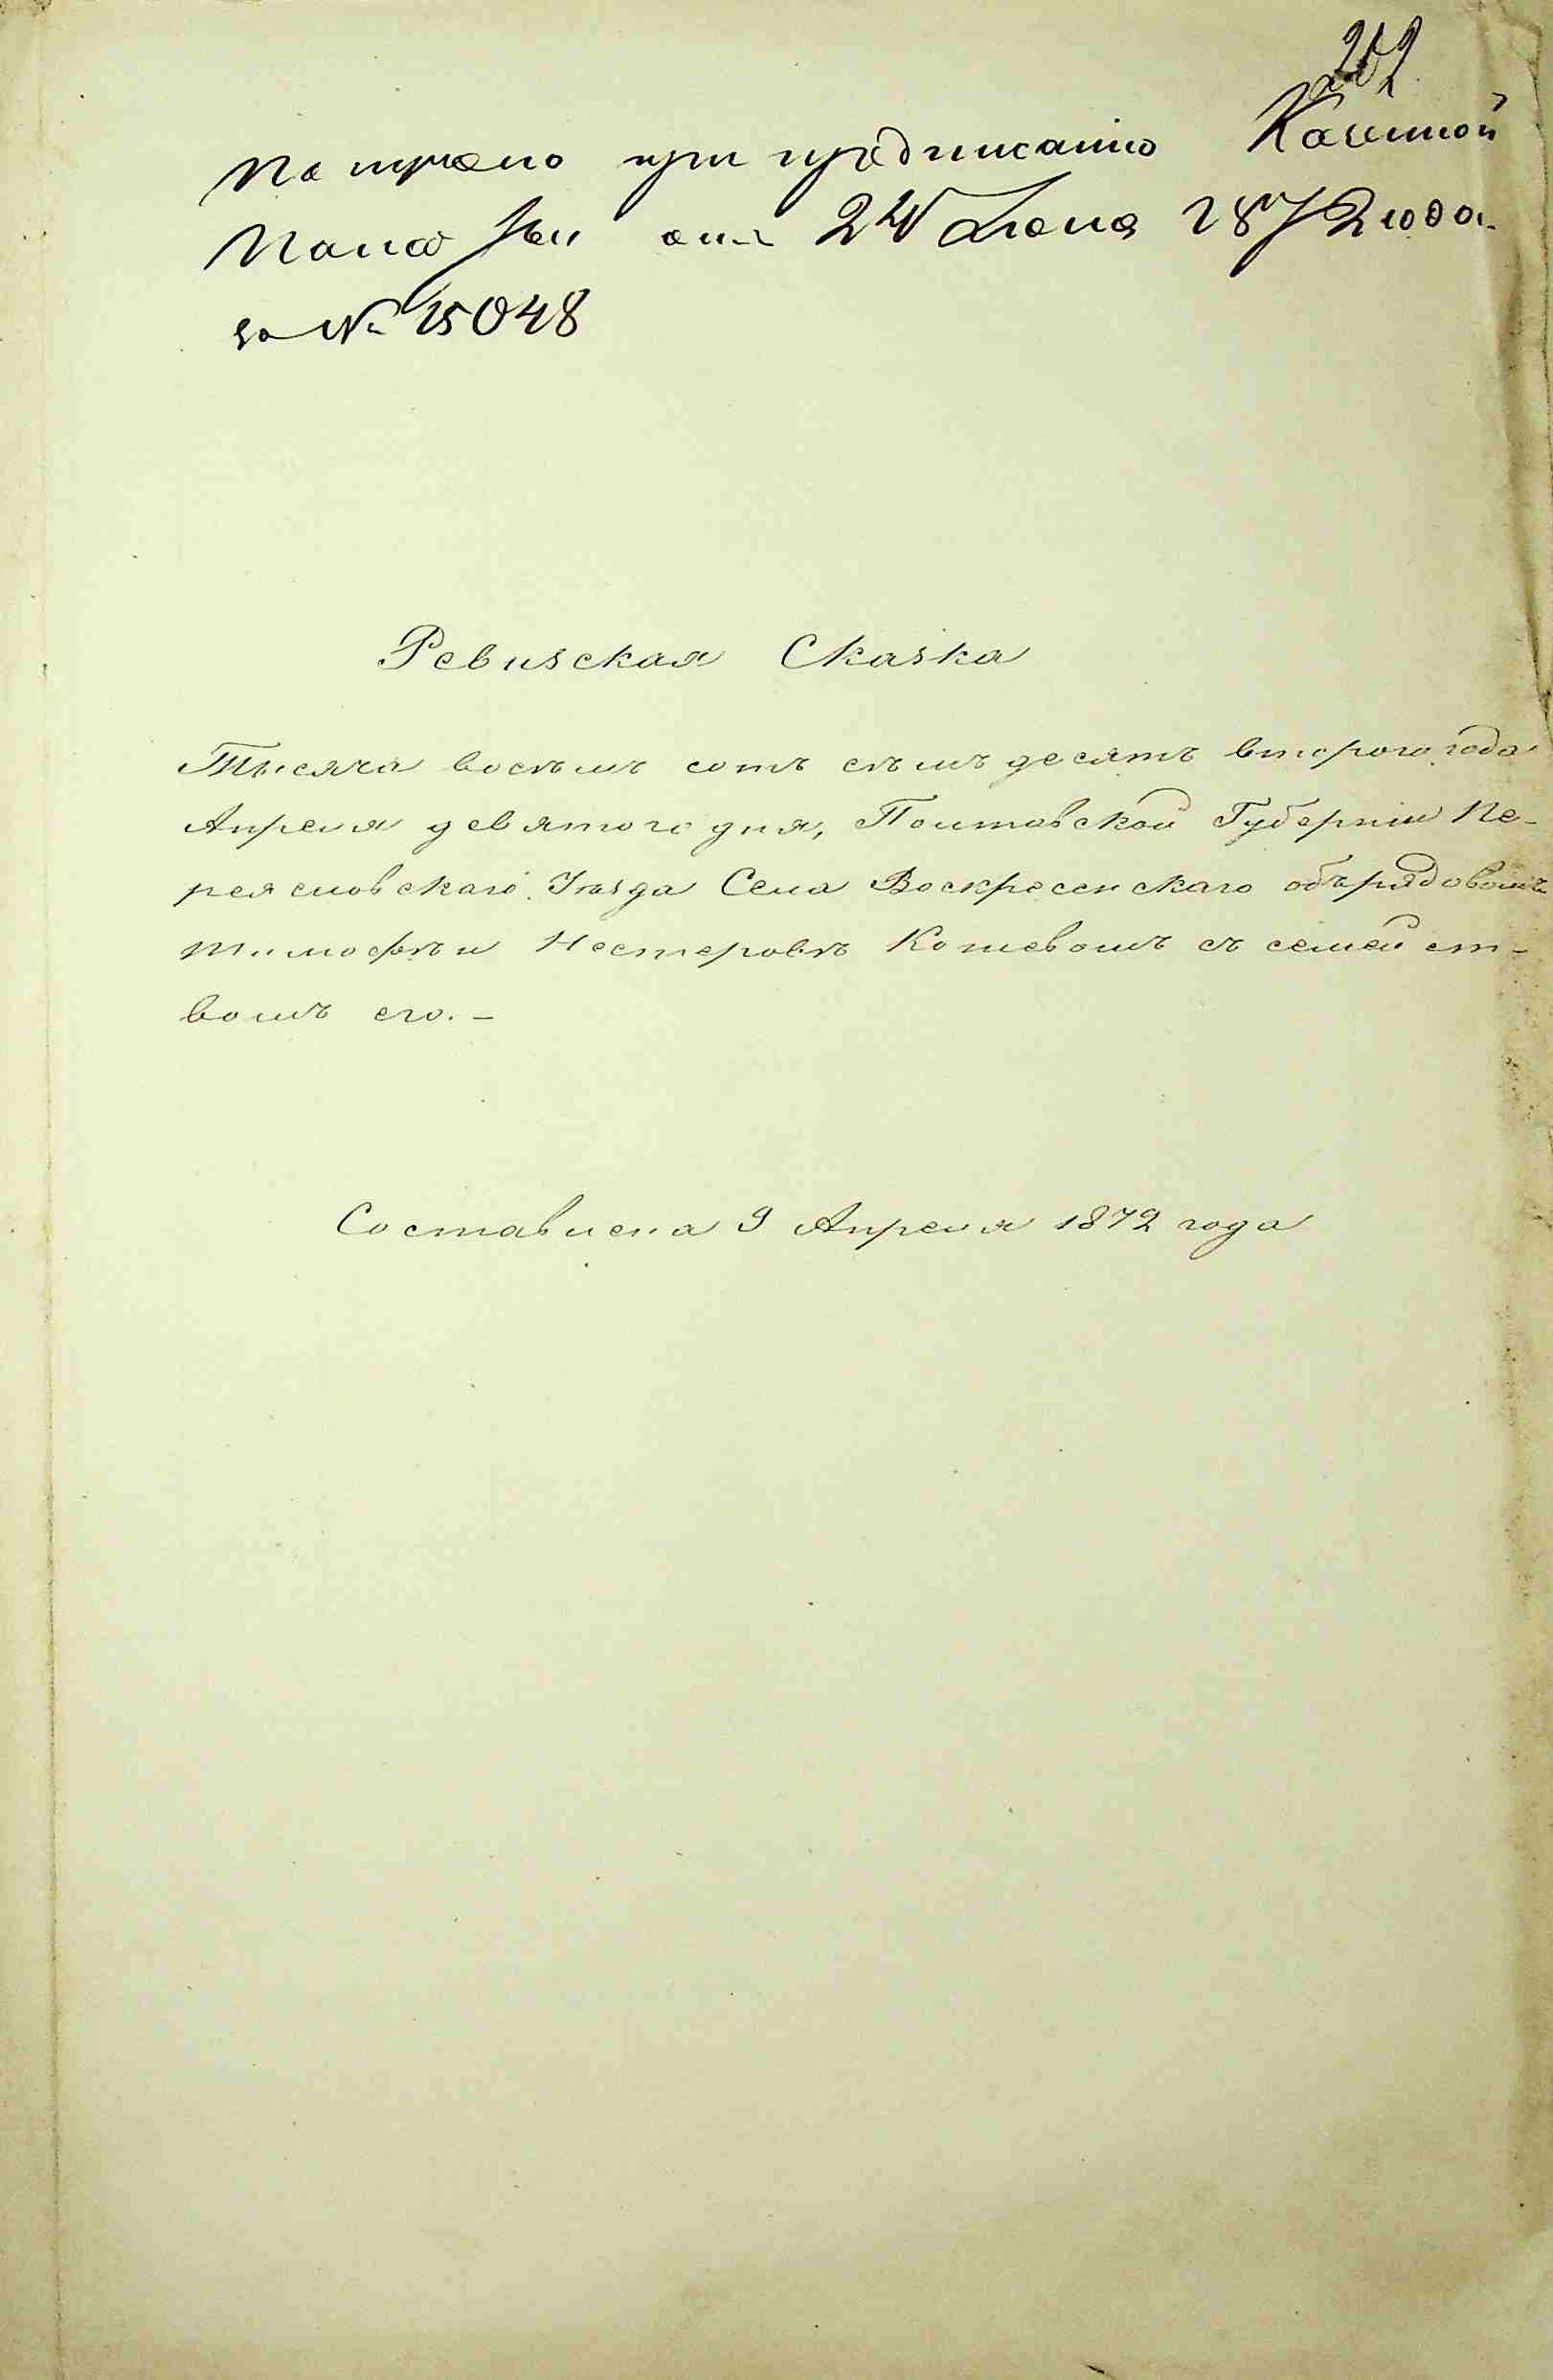 202
Получено при предписанію Казенной
Палаты отъ 24 Іюня 1872 года
за № 15048
Ревизская Сказка
Тысяча восемъ сотъ семъдесятъ второго года
Апреля девятого дня, Полтавской Губерніи Пе-
реяславскаго Уѣзда Села Воскресенскаго объ рядовомъ
Тимофѣи Нестеровѣ Кошевомъ съ семейст-
вомъ его. –
Составлена 9 Апреля 1872 года